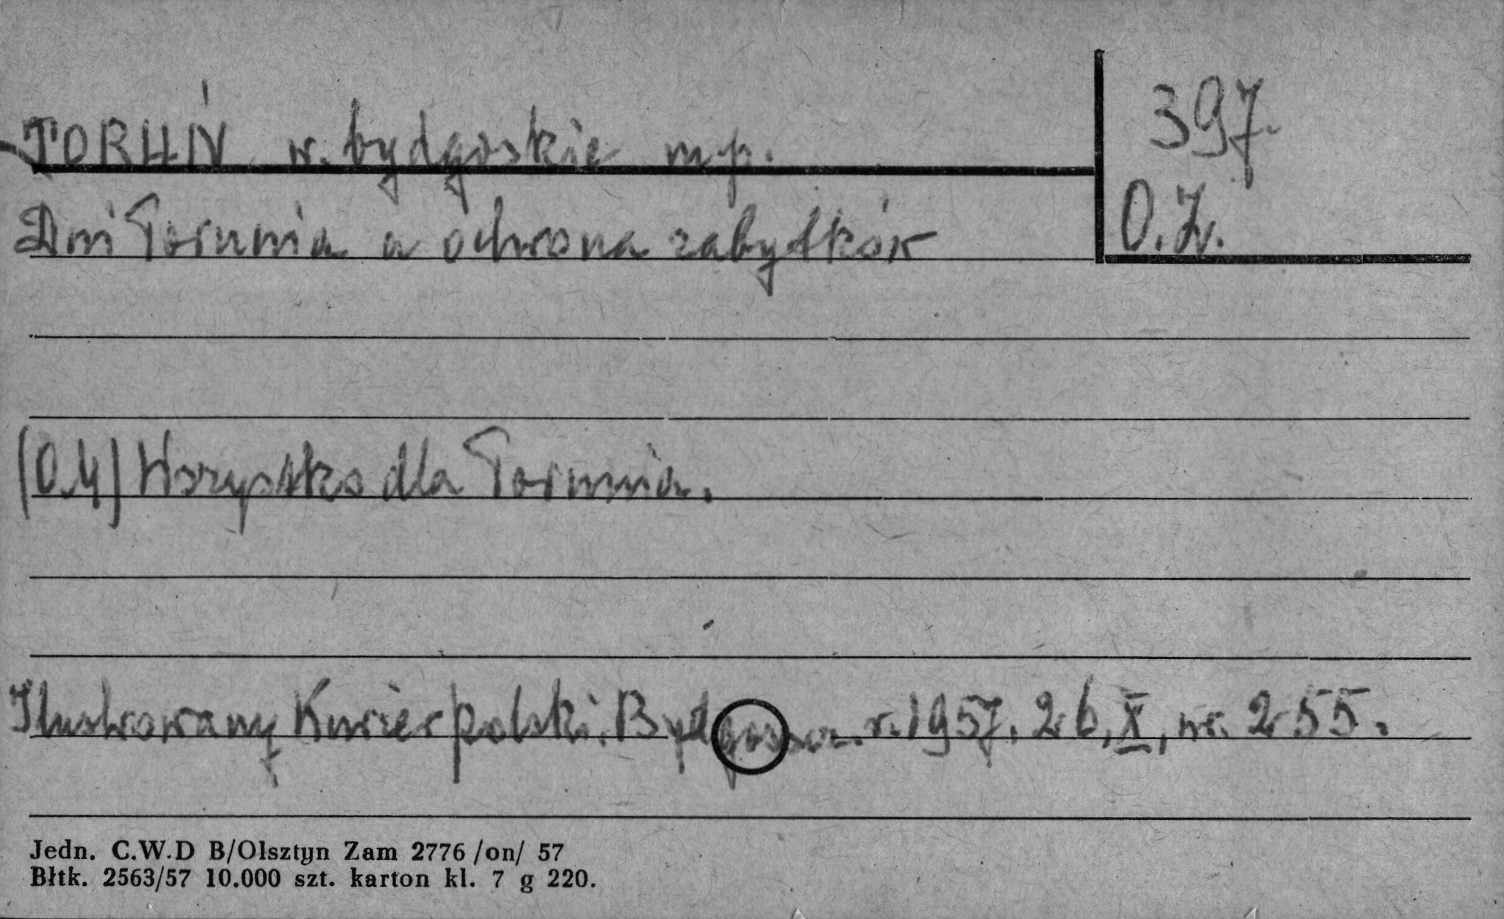 TORUŃ w. bydgoskie mp.
397.
Dni Torunia a ochrona zabytków
O.Z.
(O.H) Wszystko dla Torunia.
Ilustrowany Kurier polski. Bydgoszcz. r. 1957. 26. X, nr. 255.
Jedn. C.W.D B/Olsztyn Zam 2776 /on/ 57
Błtk. 2563/57 10.000 szt. karton kl. 7 g 220.